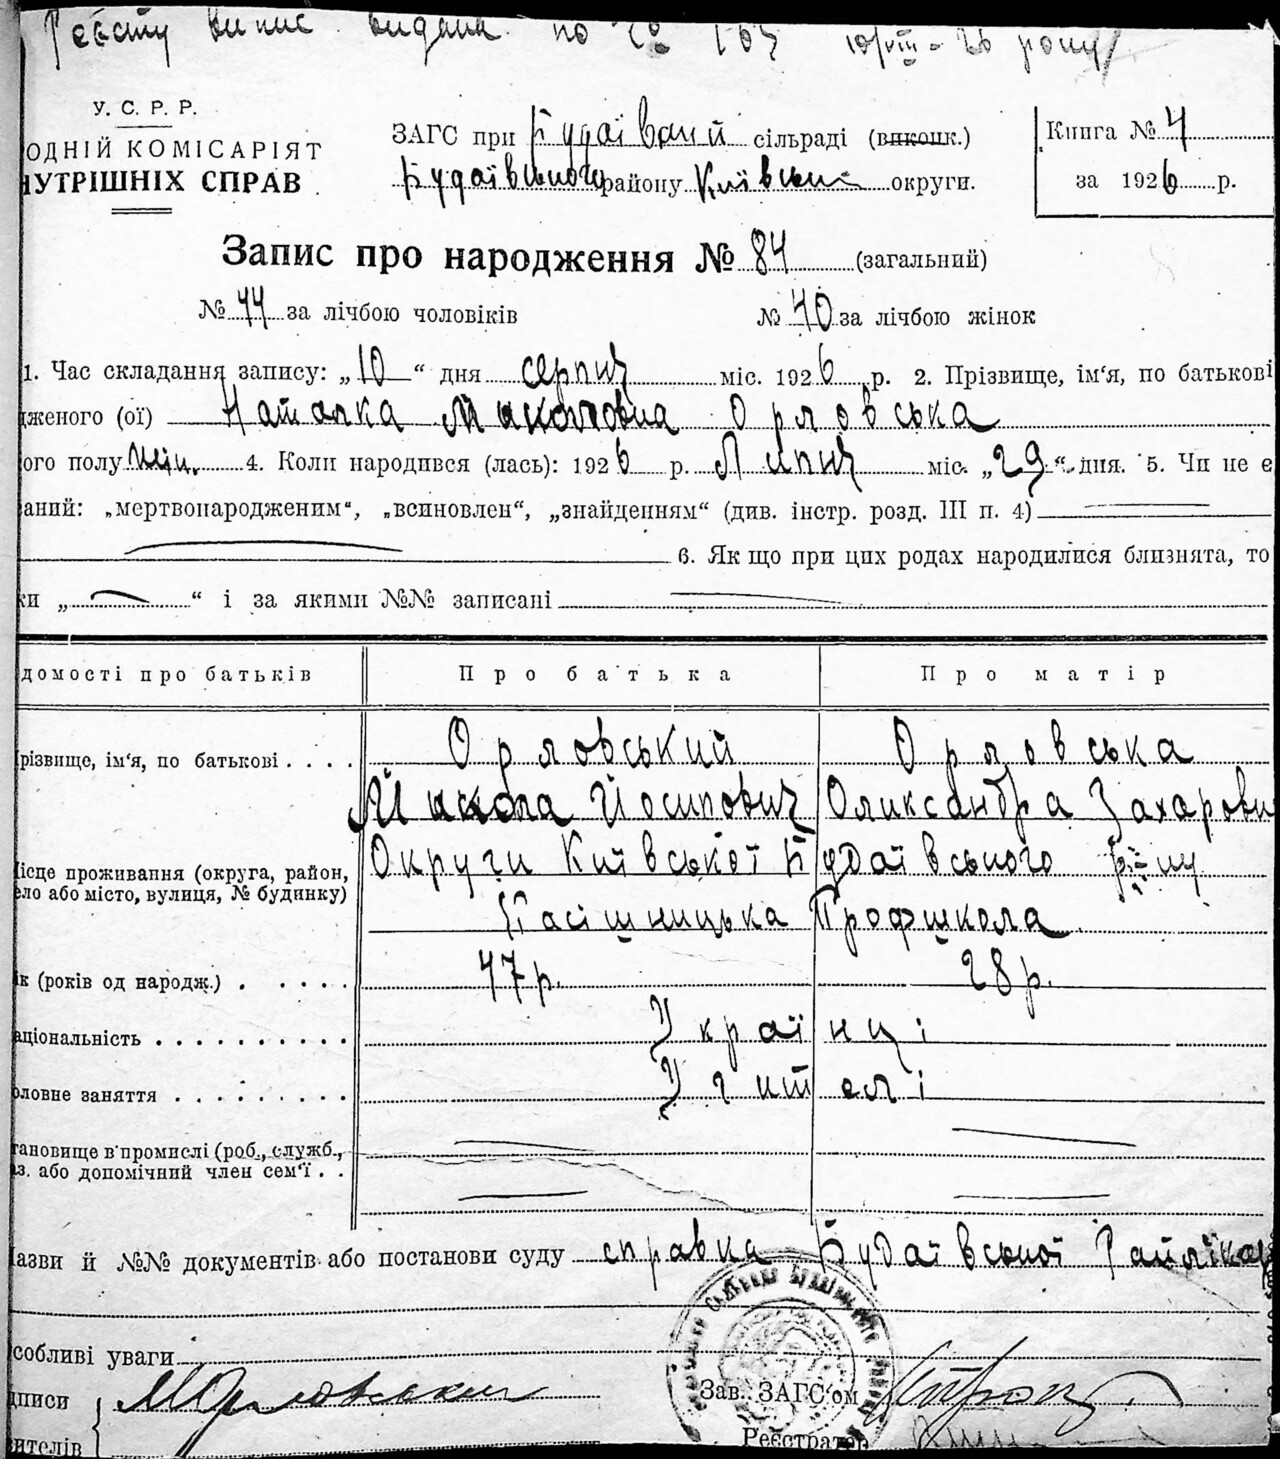 Реєстр випис видана по № 167 10/VIII-26 року
У. С. Р. Р.
ОДНІЙ КОМІСАРІЯТ
НУТРІШНІХ СПРАВ
ЗАГС при Будаївській сільраді (викопк.)
Будаївського району Київської округи.
Книга № 4
за 1926 р.
Запис про народження № 84 (загальний)
№ 44 за лічбою чоловіків № 40 за лічбою жінок
1. Час складання запису: „10“ дня серпня міс. 1926 р. 2. Прізвище, ім'я, по батькові
дженого (ої) Наталка Миколовна Орловська
ого полу жін. 4. Коли народився (лась): 1926 р. Липня міс. „29“ дня. 5. Чи не є
ваний: „мертвонародженим“, „всиновлен“, „знайденням“ (див. інстр. розд. III п. 4)
6. Як що при цих родах народилися близнята, то
ки „ “ і за якими №№ записані
домості про батьків Про батька Про матір
різвище, ім'я, по батькові Орловський Орловська
Микола Йосипович Олександра Захарови
ісце проживання (округа, район, Округи Київської Будаївського р-ну
ело або місто, вулиця, № будинку) Пасішницька Профшкола
ік (років од народж.) 47 р. 28 р.
аціональність Українці
оловне заняття Учителі
тановище в промислі (роб., служб.,
аз. або допоміжний член сем'ї
Назви й №№ документів або постанови суду справка Будаївської Райлікар
собливі уваги
дписи МОрловський Зав. ЗАГС'ом
вителів Реєстратор